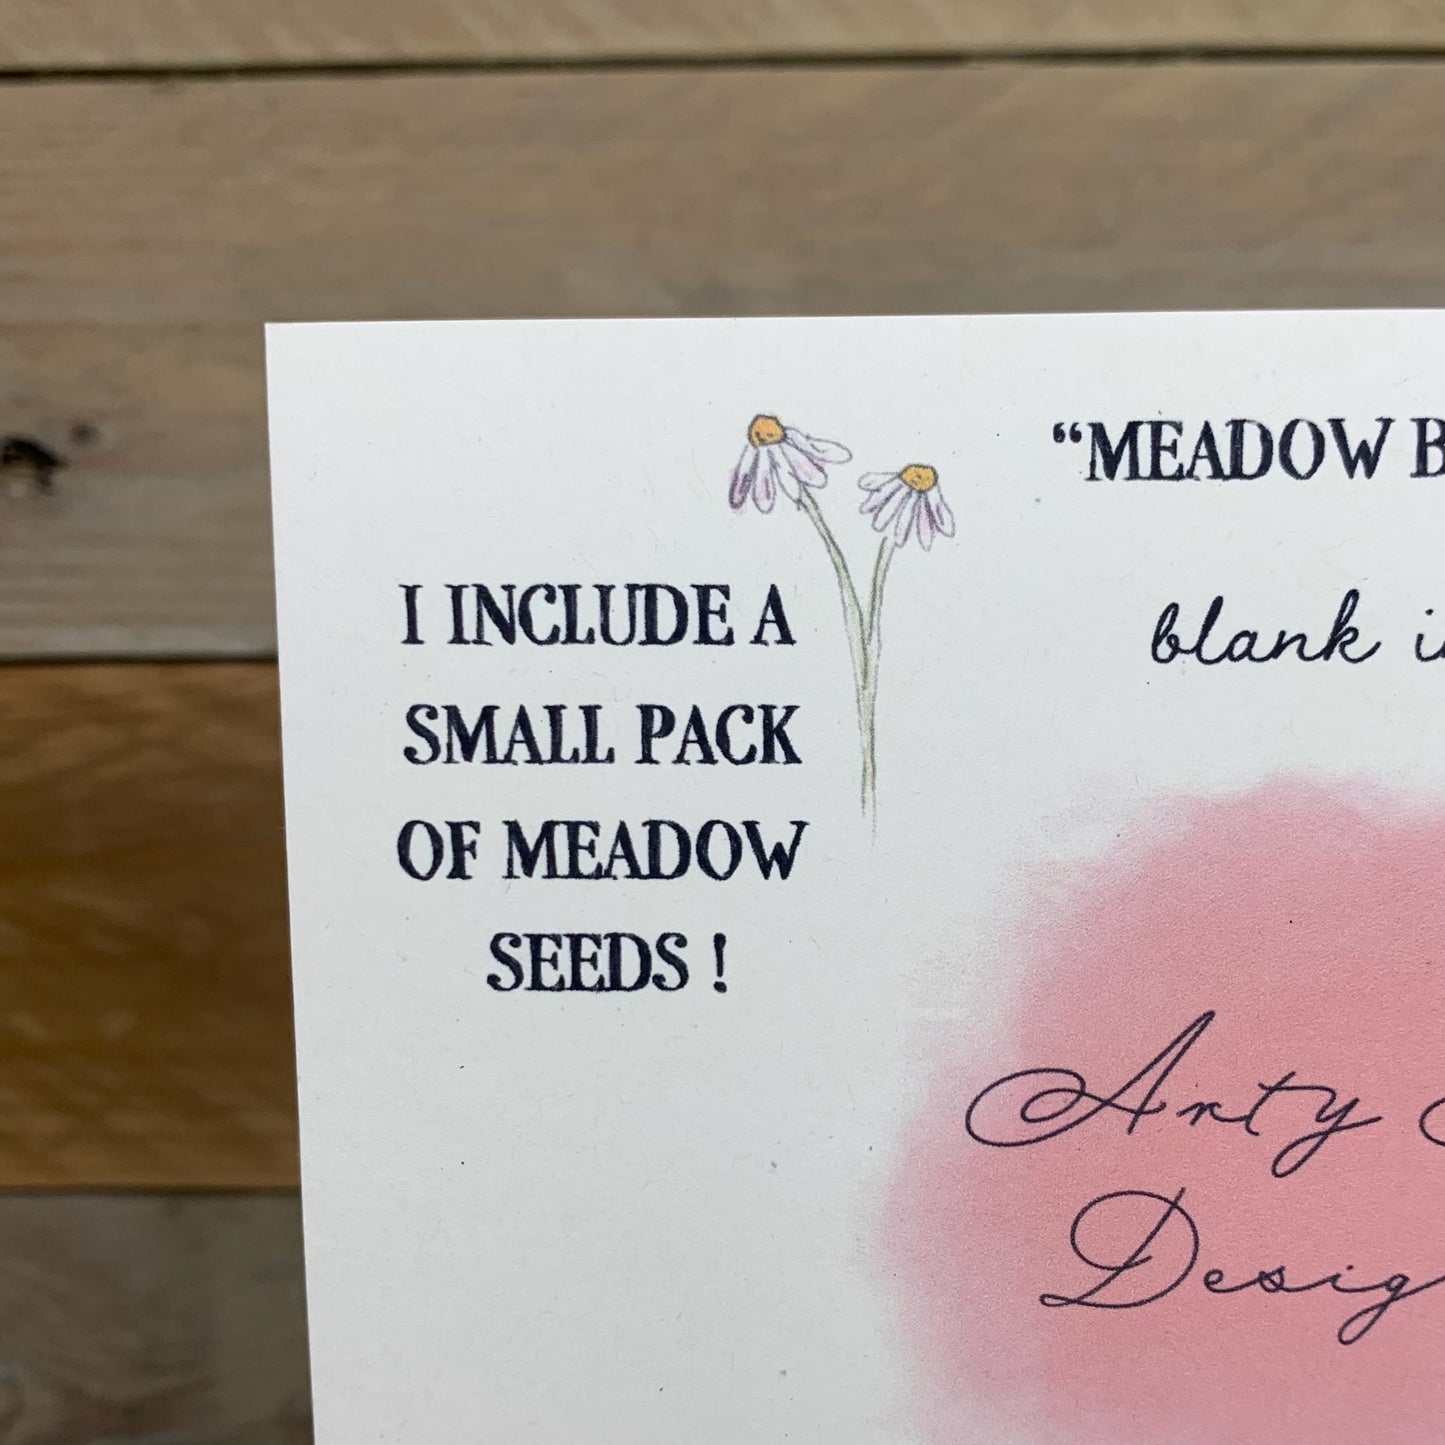 I INCLUDE A
SMALL PACK
OF MEADOW
SEEDS !
“MEADOW
blank
Arty